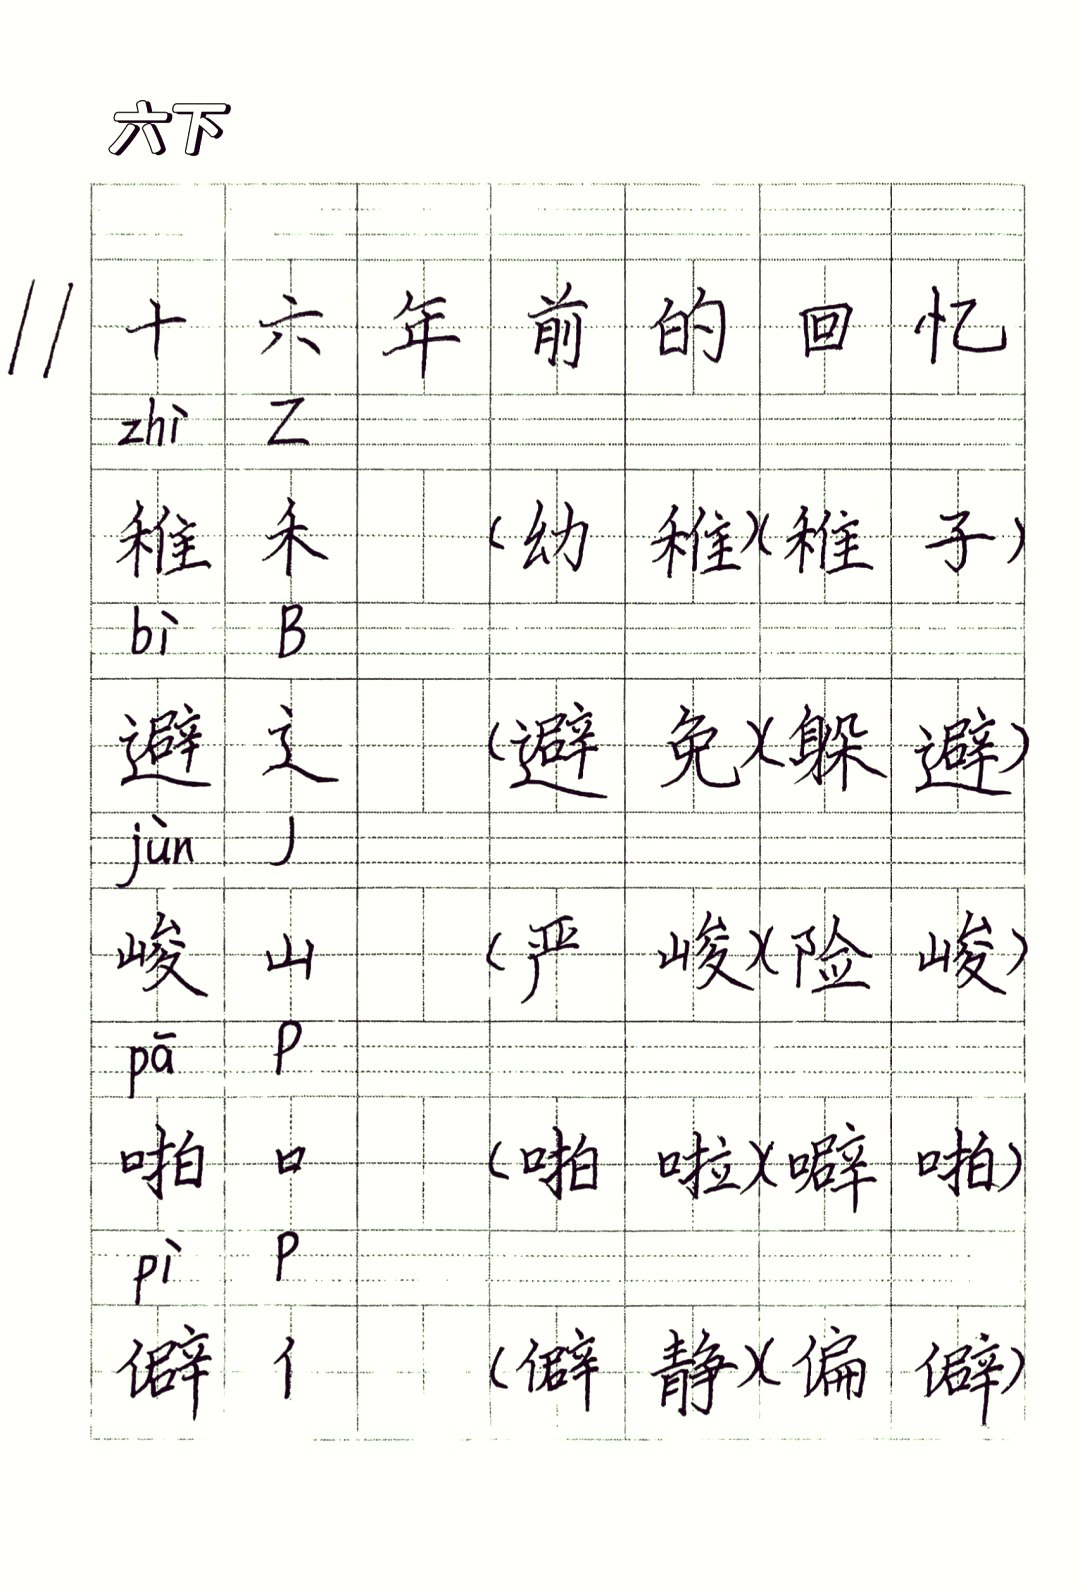 六下
11 十六年前的回忆
zhì Z
稚 禾 (幼稚)(稚子)
bì B
避 辶 (避免)(躲避)
jùn J
峻 山 (严峻)(险峻)
pā P
啪 口 (啪啦)(噼啪)
pì P
僻 亻 (僻静)(偏僻)